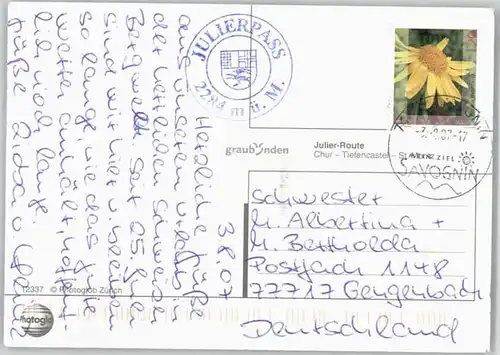 3.8.07
Herzliche Grüße
aus unserem Urlaub in
der herrlichen Schweizer
Bergwelt. Seit 25. Juli
sind wir hier u. bleiben
so lange, wie das gute
Wetter anhält, hoffent-
lich noch lange.
Grüße
JULIERPASS
2284 m ü. M.
graubünden
Julier-Route
Chur – Tiefencastel – St. Moritz
SAVOGNIN
Schwester
M. Albertina +
M. Bertholda
Postfach 1148
77717 Gengenbach
Deutschland
12337 © Photoglob Zürich
Photoglob